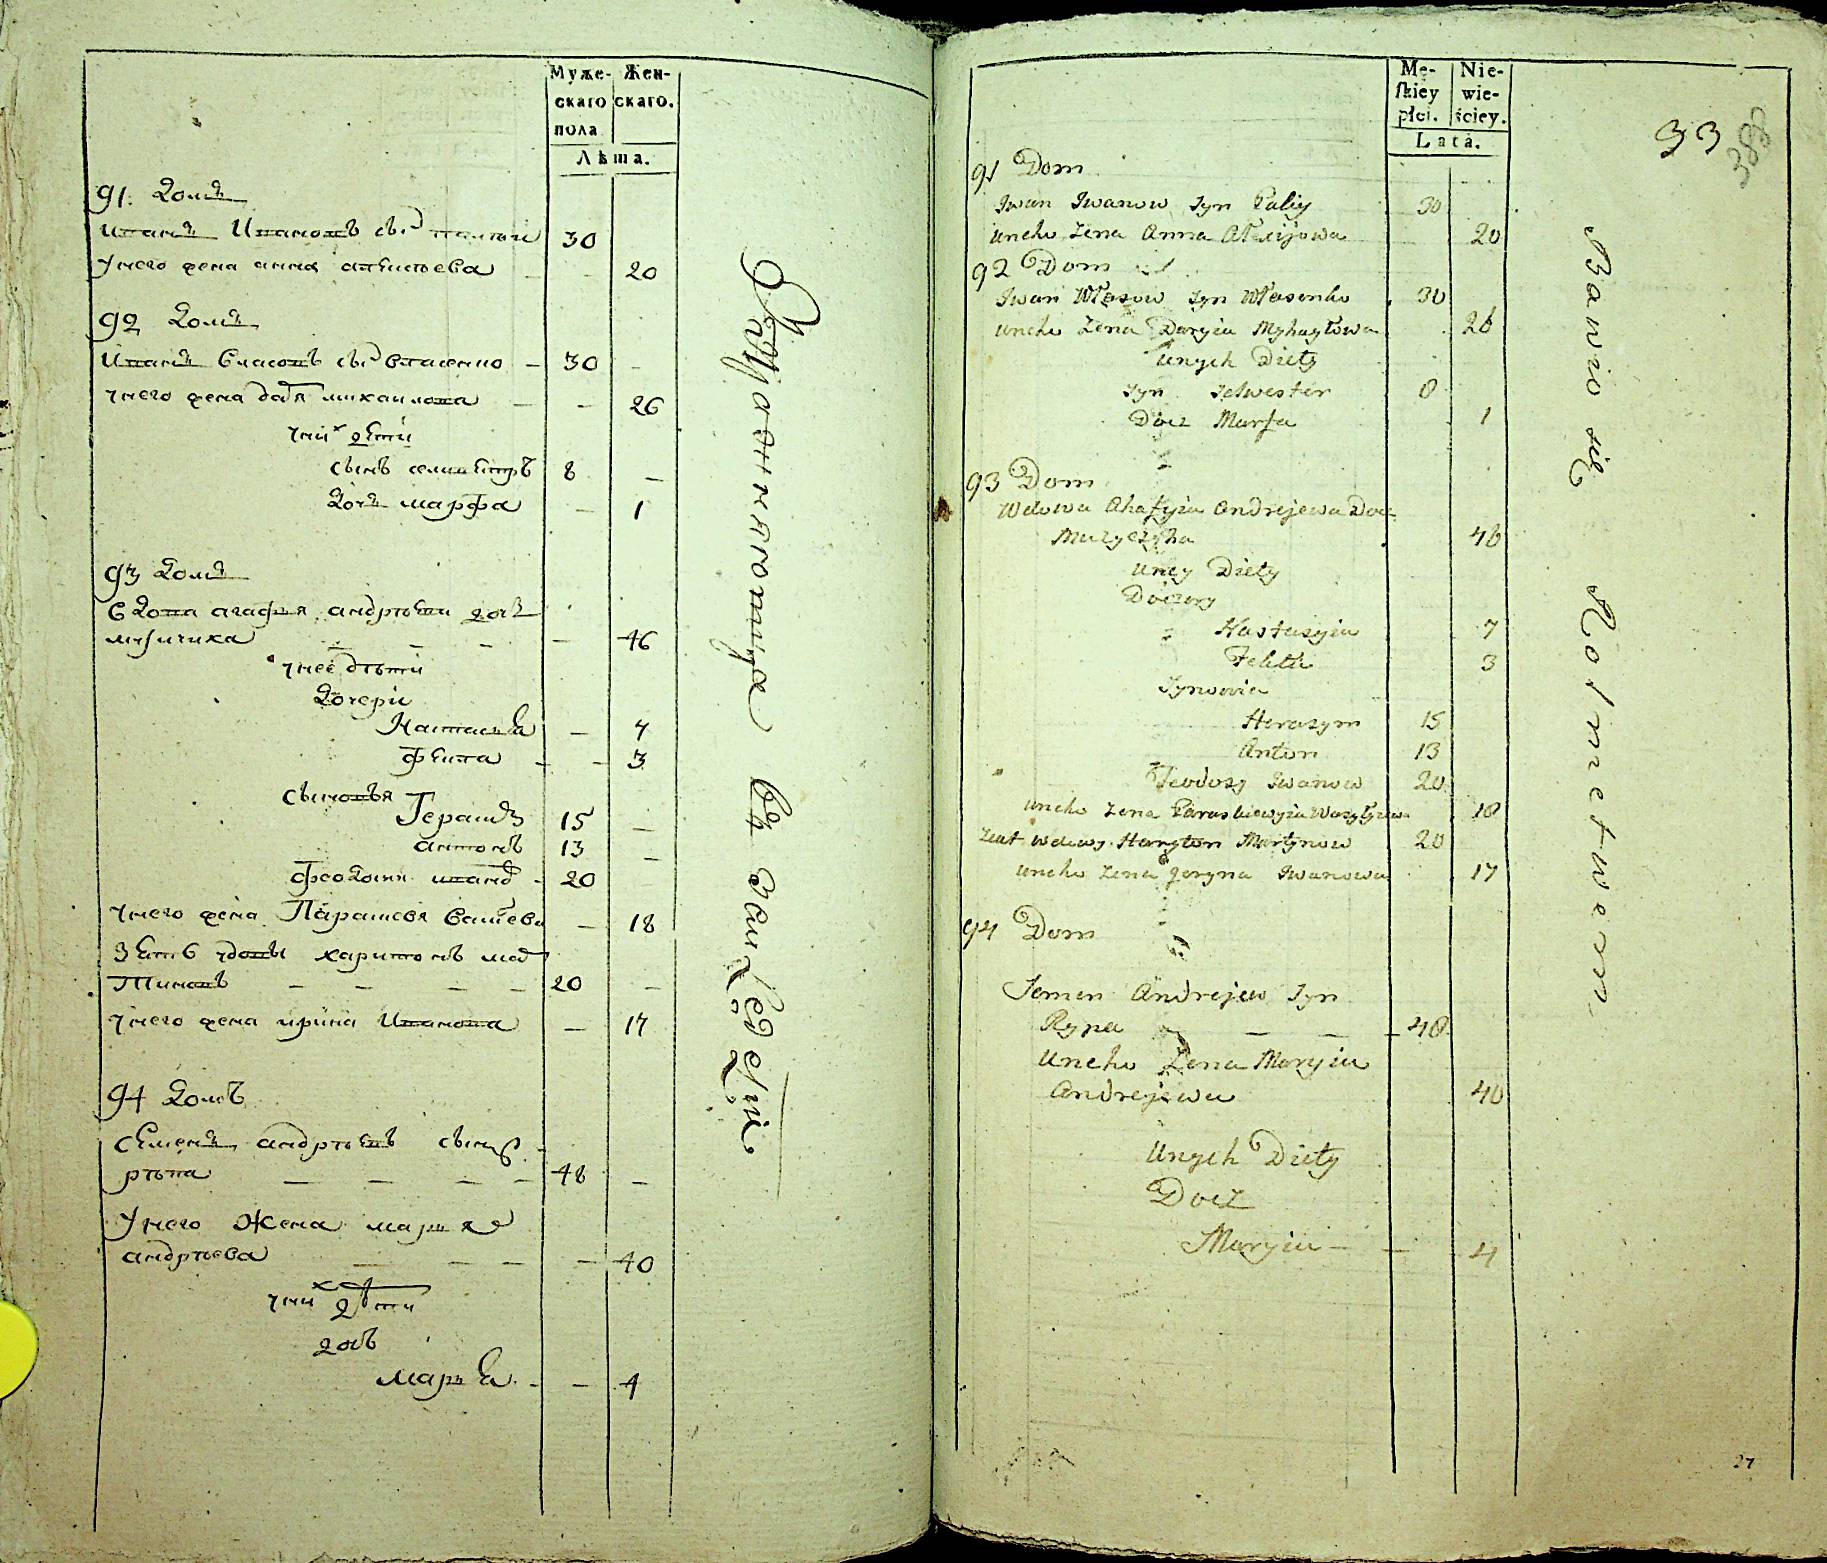 Муже- Жен-
скаго скаго.
пола
Лѣта.
91. Домъ
Иванъ Ивановъ сынъ Палий 30
У него жена анна алексѣева 20
92 Домъ
Иванъ Власовъ сынъ Власенко 30
У него жена дарья михаилова 26
У них дѣти
сынъ селивестръ 8
Дочь марфа 1
93 Домъ
Вдова агафия андрѣева дочь
музичиха 46
У нее дѣти
Дочери
Настасья 7
Фекла 3
сыновья
Герасим 15
антонъ 13
Феодосий иванов 20
У него жена Парасковя Василева 18
Зять вдовы харитонъ мар
тиновъ 20
У него жена ирина Иванова 17
94 Домъ
Семенъ андрѣевъ сынъ
рѣпа 48
У него Жена марья
андрѣева 40
У них дѣти
дочь
марья 4
въ земледелии
Mę- Nie-
skiey wie-
płci. ściey.
Lata.
33
388
91 Dom
Iwan Iwanow Syn Paliy 30
Uneho Zena Anna Alexijowa 20
92 Dom
Iwan Własow Syn Własenko 30
Uneho Zena Daryia Myhayłowa 26
Unych Diety
Syn Selwester 8
Docz Marfa 1
93 Dom
Wdowa Ahafyia Andrejewa Docz
Muzyczycha 46
Uney Diety
Doczery
Nastazyia 7
Fekła 3
Synowia
Herazym 15
Anton 13
Teodozy Iwanow 20
Uneho Zena Paraskiewyia Wasylijewa 18
Ziat Wdowy Haryton Martynow 20
Uneho Zena Jaryna Iwanowa 17
94 Dom
Semen Andrejew Syn
Rypa 48
Uneho Zena Maryia
Andrejewa 40
Unych Diety
Docz
Maryia 4
Bawio się Rolnictwem
27